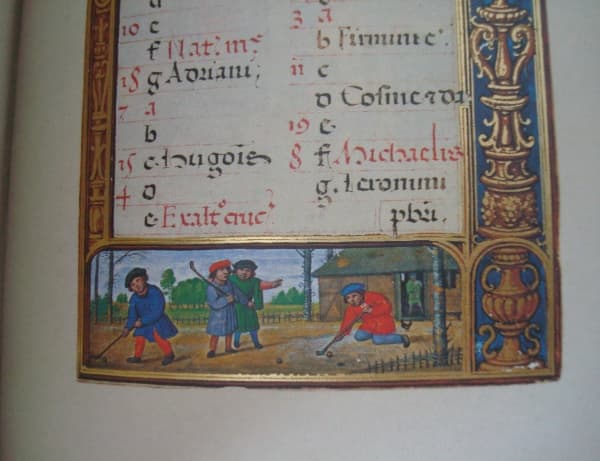 10 e
f Nat. ms
18 g Adriani;
7 a
b
15 c. Hugonis
4 d
e. Exalt° cruc
3 a
b Firmini e.
11 c
d Cosme & da
19 e.
8 f Michaelis
g. Ieronimi
pbri.